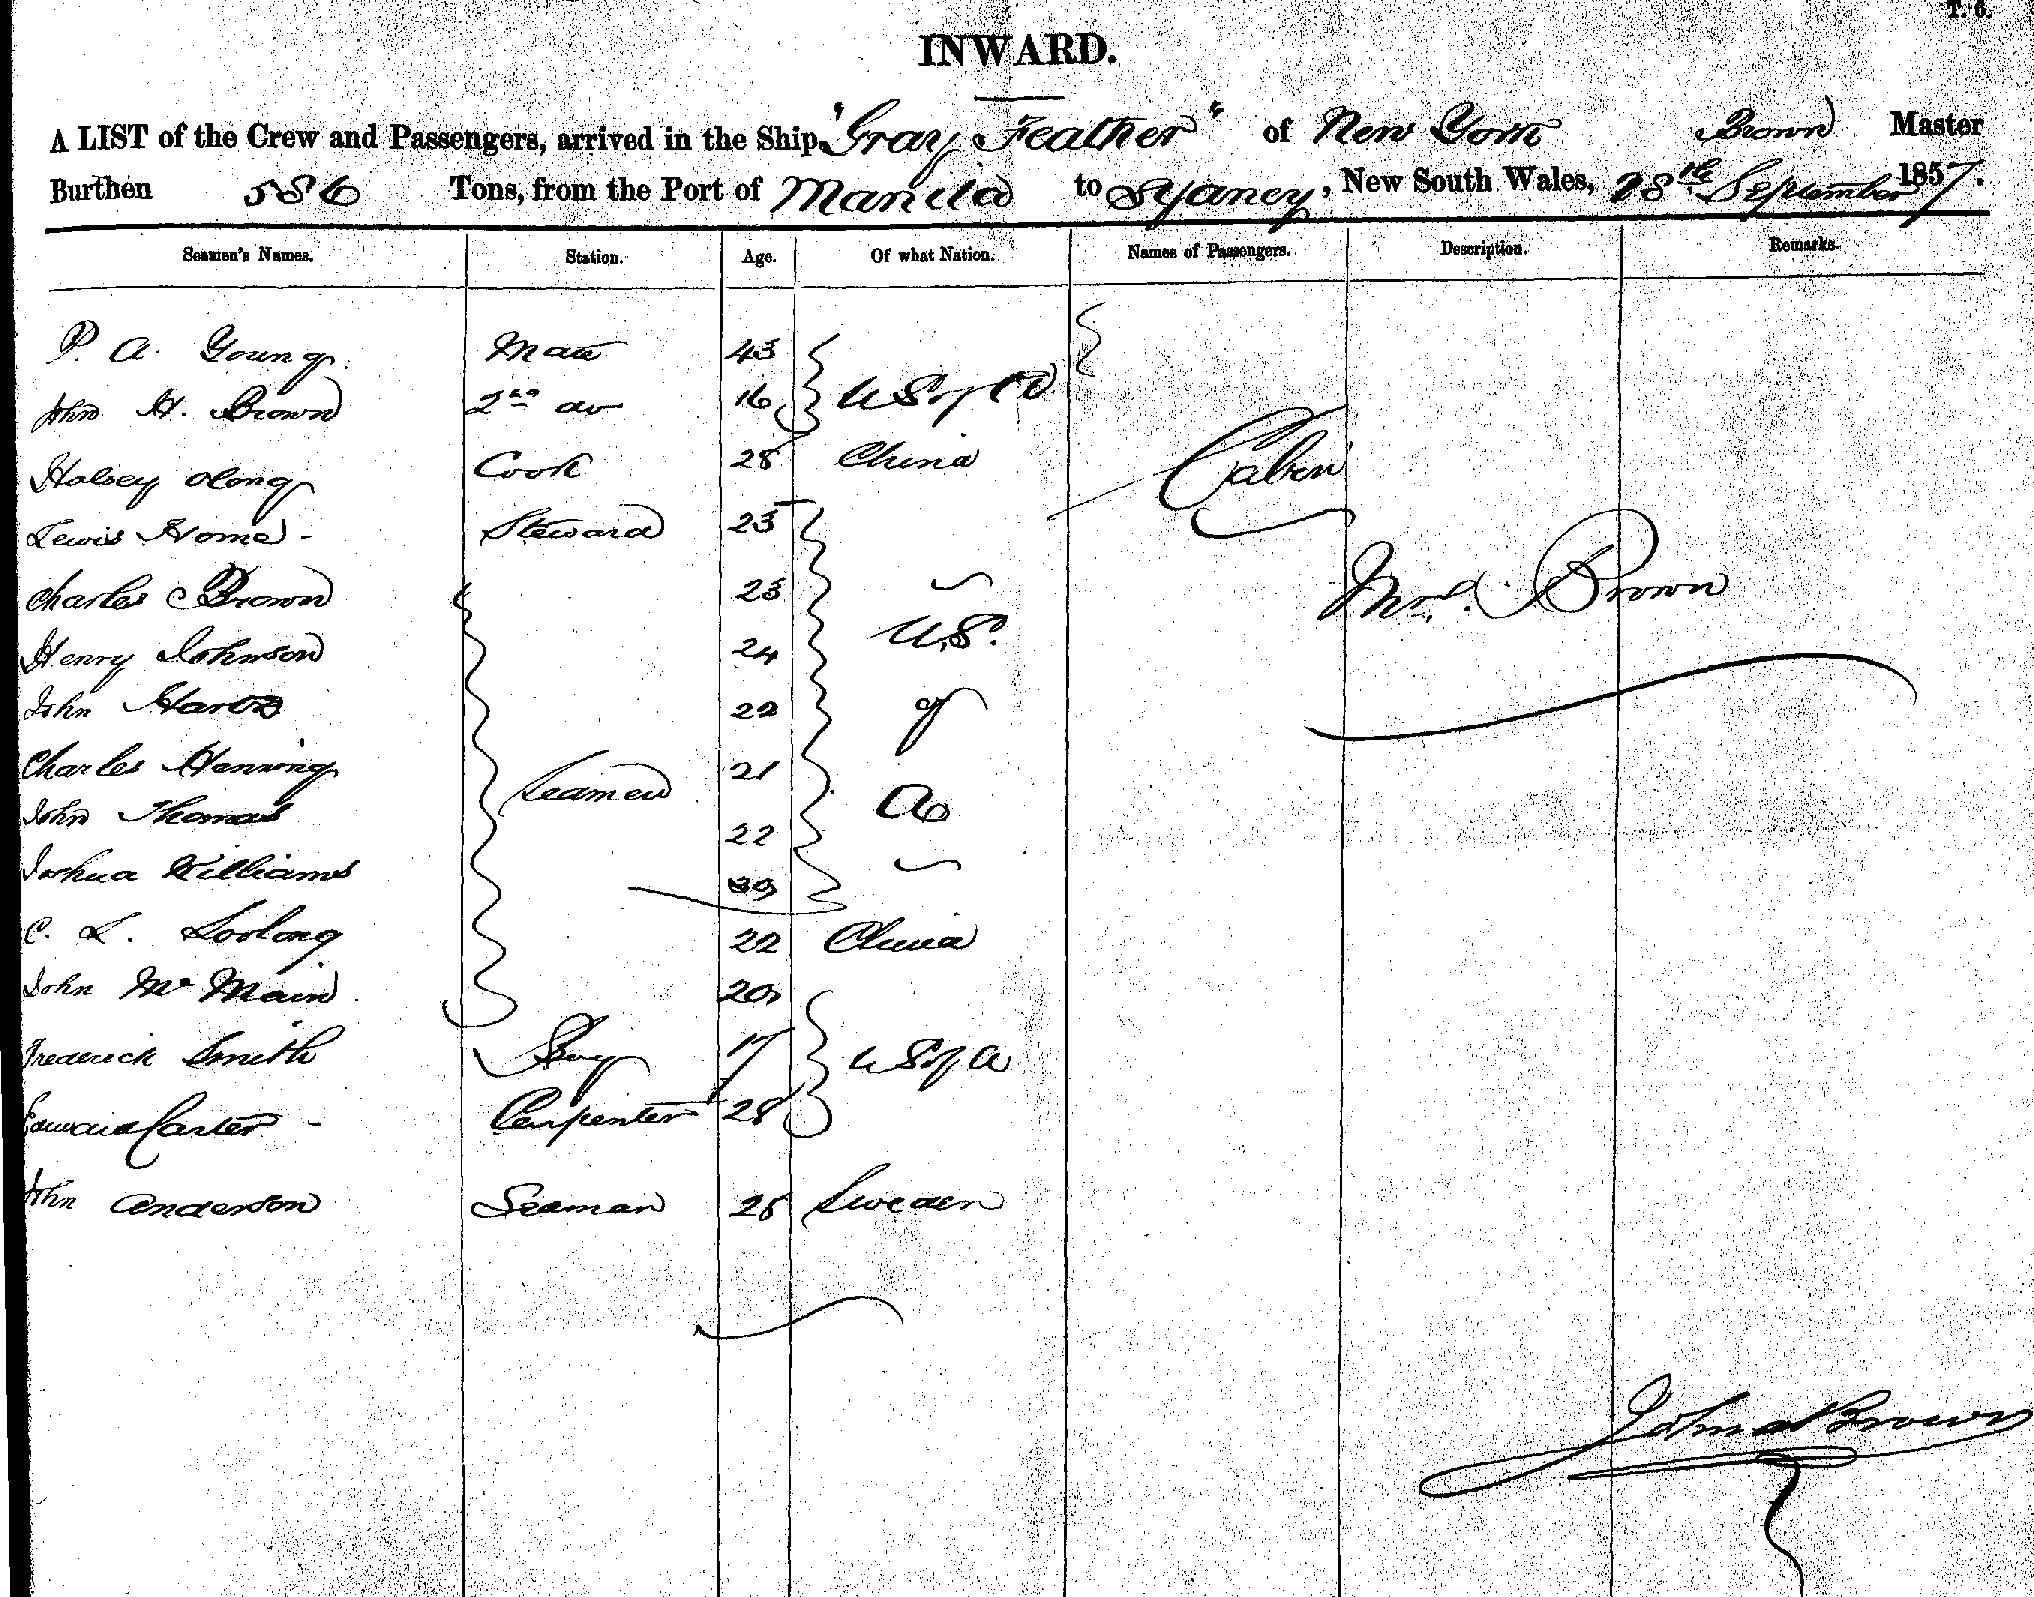 T. 6.
INWARD.
A LIST of the Crew and Passengers, arrived in the Ship "Gray Feather" of New York Brown Master
Burthen 586 Tons, from the Port of Manila to Sydney, New South Wales, 28th September 1857.
Seamen's Names. Station. Age. Of what Nation. Names of Passengers. Description. Remarks.
P. A. Young. Mate 43
John H. Brown 2nd do 16 U S of A
Halsey Along Cook 28 China Cabin
Lewis Home - Steward 23
Charles Brown 23 Mrs. Brown
Henry Johnson 24 U.S.
John 22 of
Charles Henning 21
Seamen A
John Thomas 22
Joshua Williams 39
C. L. 22 China
John Mc Main 20
Frederick Smith Boy 17 U S of A
Edward Carter - Carpenter 28
John Anderson Seaman 28 Sweden
John Brown